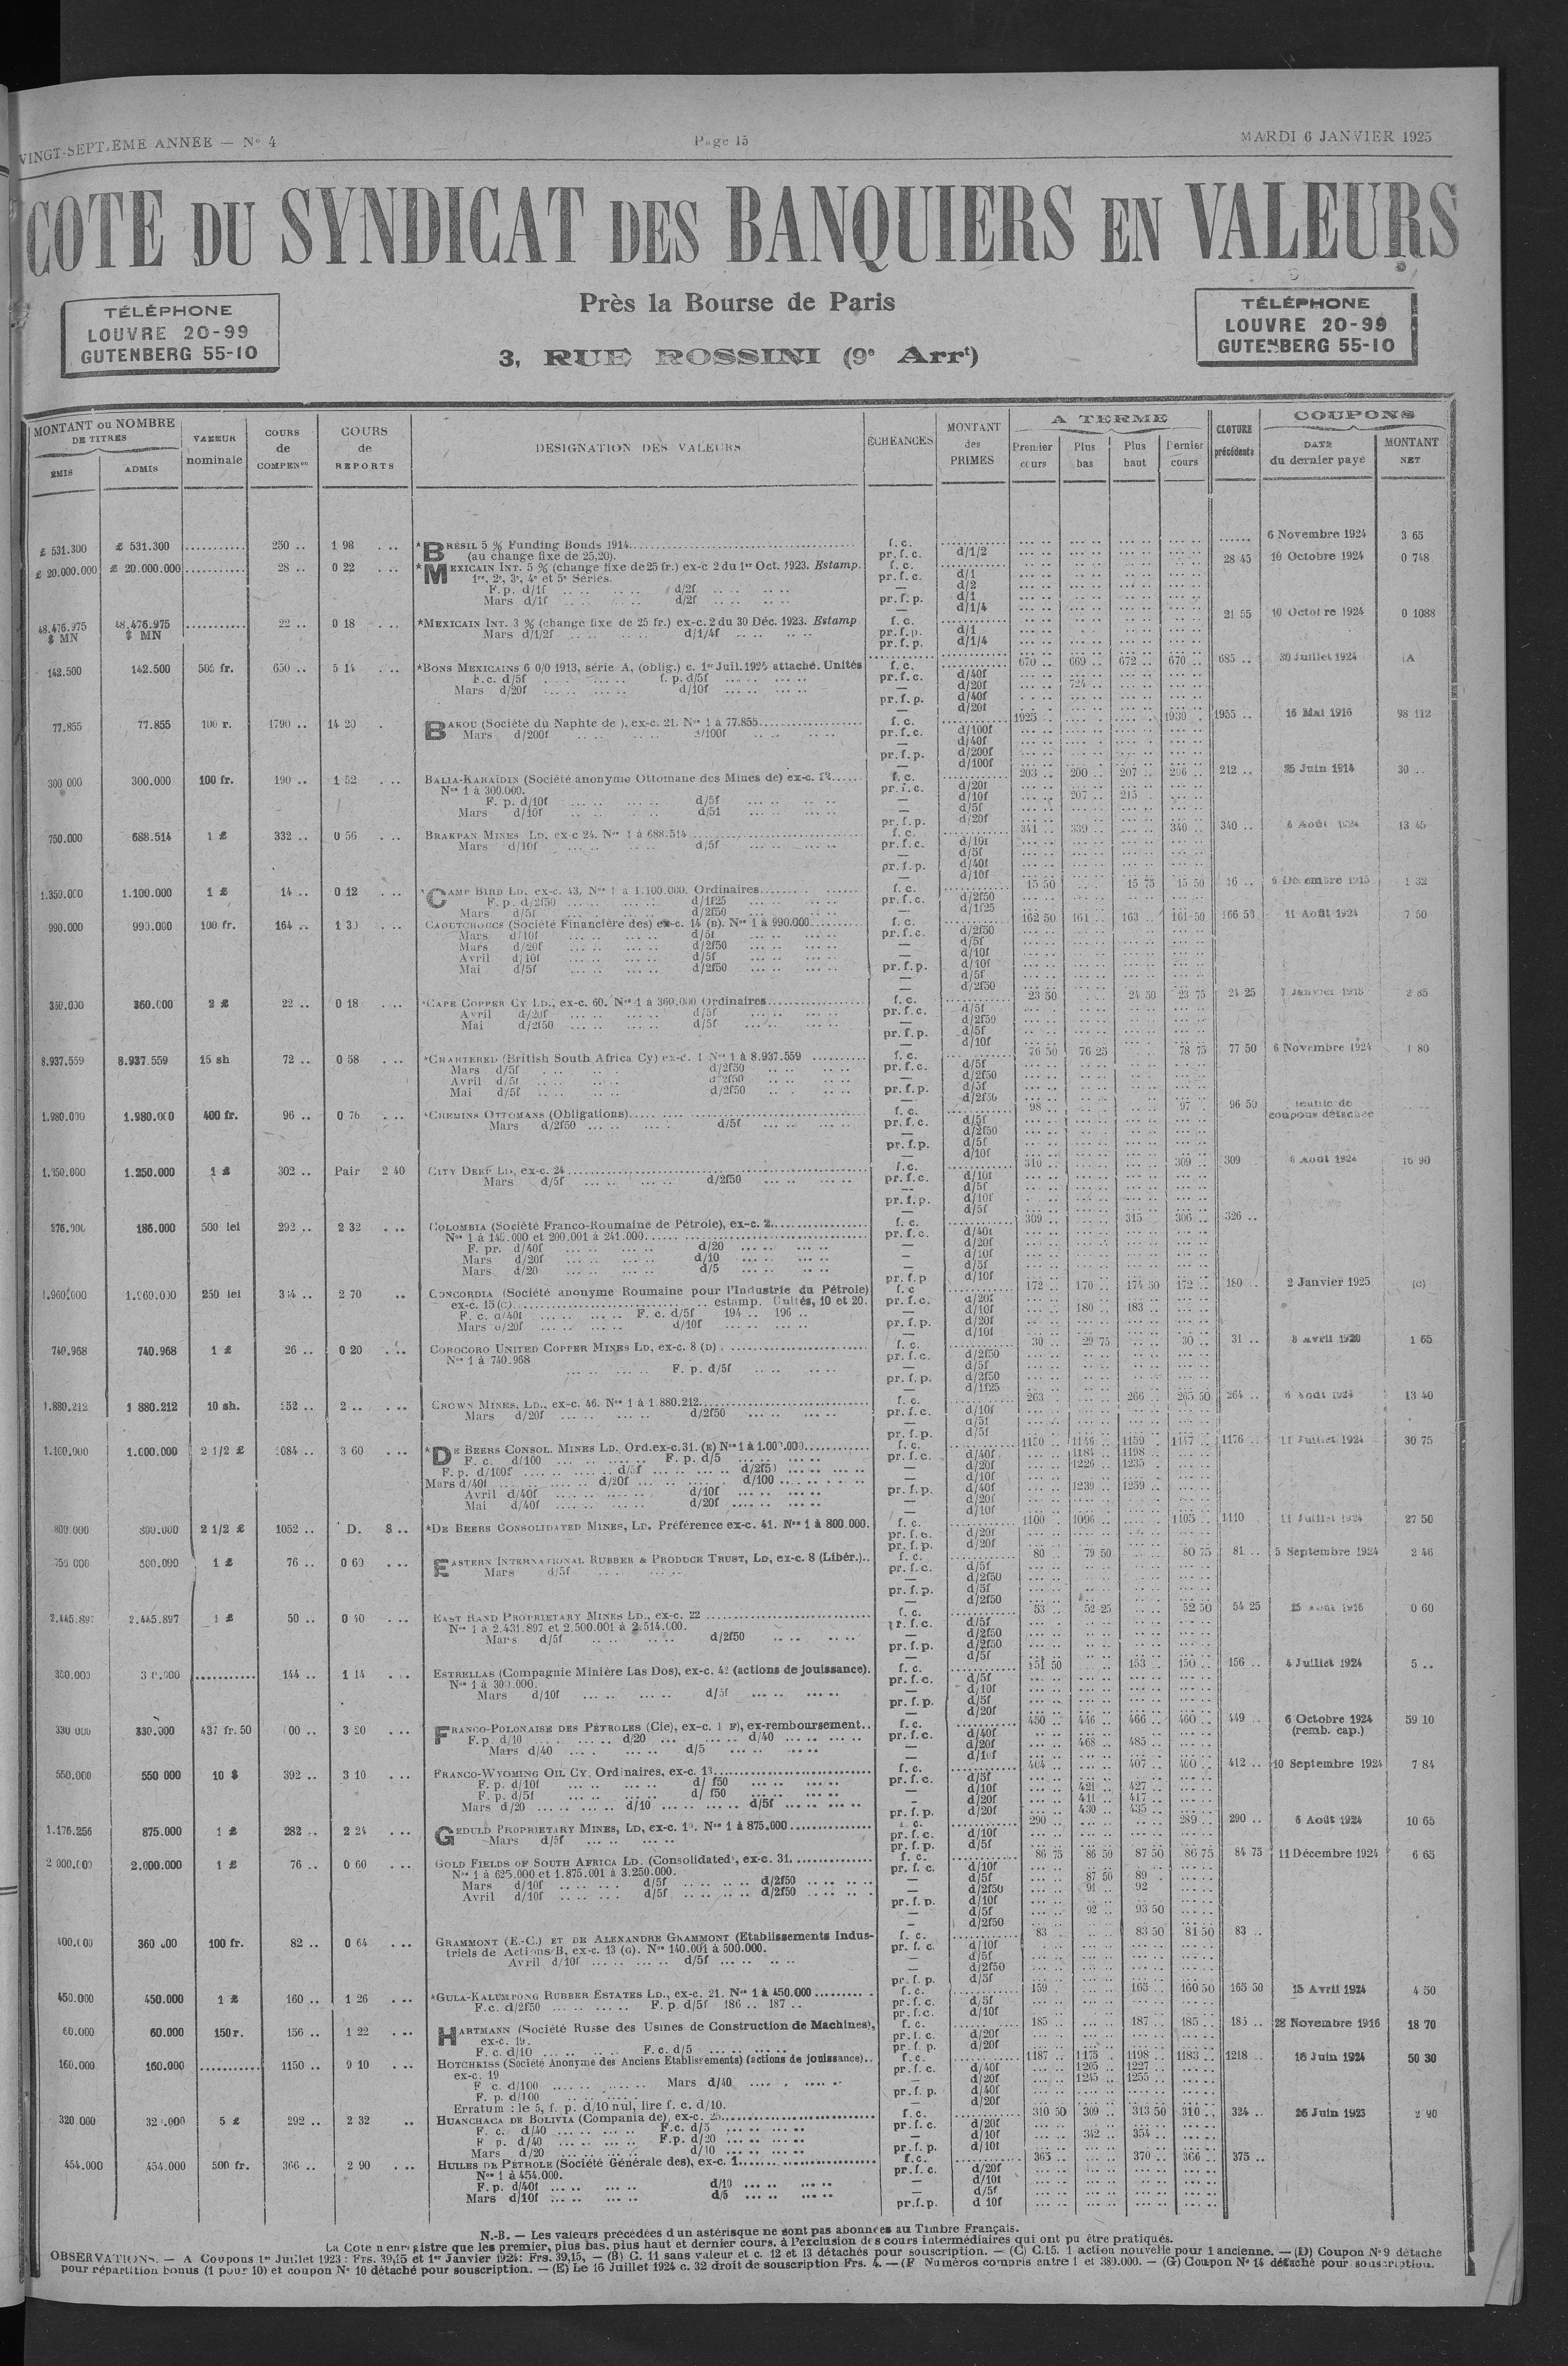 VINGT-SEPTIÈME ANNÉE — N° 4
Page 15
MARDI 6 JANVIER 1925
COTE DU SYNDICAT DES BANQUIERS EN VALEURS
TÉLÉPHONE
LOUVRE 20-99
GUTENBERG 55-10
Près la Bourse de Paris
3, RUE ROSSINI (9e Arrt)
TÉLÉPHONE
LOUVRE 20-99
GUTENBERG 55-10
MONTANT ou NOMBRE DE TITRES
ÉMIS
ADMIS
VALEUR nominale
COURS de COMPENon
COURS de REPORTS
DESIGNATION DES VALEURS
ÉCHEANCES
MONTANT des PRIMES
A TERME
Premier cours
Plus bas
Plus haut
Dernier cours
CLOTURE précédente
COUPONS
DATE du dernier payé
MONTANT NET
£ 531.300 £ 531.300 250 .. 1 98 *BRÉSIL 5 % Funding Bonds 1914 f. c. 6 Novembre 1924 3 65
(au change fixe de 25,20). pr. f. c. d/1/2
£ 20.000.000 £ 20.000.000 28 .. 0 22 *MEXICAIN INT. 5 % (change fixe de 25 fr.) ex-c 2 du 1er Oct. 1923. Estamp. f. c. 28 45 10 Octobre 1924 0 748
1re, 2e, 3e, 4e et 5e Séries. pr. f. c. d/1
F. p. d/1f d/2f — d/2
Mars d/1f d/2f pr. f. p. d/1
— d/1/4
48.476.975 $ MN 48.476.975 $ MN 22 .. 0 18 *MEXICAIN INT. 3 % (change fixe de 25 fr.) ex-c. 2 du 30 Déc. 1923. Estamp f. c. 21 55 10 Octobre 1924 0 1088
Mars d/1/2f d/1/4f pr. f. p. d/1
pr. f. p. d/1/4
142.500 142.500 505 fr. 650 .. 5 14 *BONS MEXICAINS 6 0/0 1913, série A, (oblig.) c. 1er Juil. attaché. Unités f. c. 670 .. 669 .. 672 .. 670 .. 685 .. 30 Juillet 1924 (A
F.c. d/5f f. p. d/5f pr. f. c. d/40f
Mars d/20f d/10f — d/20f 724 ..
pr. f. p. d/40f
— d/20f
77.855 77.855 100 r. 1790 .. 14 20 BAKOU (Société du Naphte de ), ex-c. 21. Nos 1 à 77.855 f. c. 1925 1930 .. 1955 .. 16 Mai 1916 98 112
Mars d/200f d/100f pr. f. c. d/100f
— d/40f
pr. f. p. d/200f
— d/100f
300 000 300.000 100 fr. 190 .. 1 52 BALIA-KARAÏDIN (Société anonyme Ottomane des Mines de) ex-c. f. c. 203 .. 200 .. 207 .. 206 .. 212 .. 25 Juin 1914 30 ..
Nos 1 à 300.000. pr. f. c. d/20f
F. p. d/10f d/5f — d/10f 207 .. 215
Mars d/10f d/5f — d/5f
pr. f. p. d/20f
750.000 688.514 1 £ 332 .. 0 56 BRAKPAN MINES LD, ex-c 24. Nos 1 à 688.514 f. c. 341 .. 339 .. 340 .. 340 .. 6 Août 1924 13 45
Mars d/10f d/5f pr. f. c. d/10f
— d/5f
pr. f. p. d/40f
— d/10f
1.350.000 1.100.000 1 £ 14 .. 0 12 CAMP BIRD LD. ex-c. 43. Nos 1 à 1.100.000. Ordinaires f. c. 15 50 15 75 15 50 16 .. 1 32
F. p. d/2f50 d/1f25 pr. f. c. d/2f50
Mars d/5f d/2f50 — d/1f25
990.000 990.000 100 fr. 164 .. CAOUTCHOUCS (Société Financière des) ex-c. 14 (B). Nos 1 à 990.000 f. c. 162 50 161 .. 163 .. 161 50 166 50 11 Août 1924 7 50
Mars d/10f d/5f pr. f. c. d/2f50
Mars d/20f d/2f50 — d/5f
Avril d/10f d/5f — d/10f
Mai d/5f d/2f50 pr. f. p. d/10f
— d/5f
— d/2f50
360.000 360.000 2 £ 22 .. 0 18 *CAPE COPPER CY LD., ex-c. 60. Nos 1 à 360.000 Ordinaires f. c. 23 50 24 50 23 75 24 25 2 85
Avril d/20f d/5f pr. f. c. d/5f
Mai d/2f50 d/5f — d/2f50
pr. f. p. d/5f
— d/10f
8.937.559 8.937.559 15 sh 72 .. 0 58 *CHARTERED (British South Africa Cy) ex-c. 1 Nos 1 à 8.937.559 f. c. 76 50 76 25 78 75 77 50 6 Novembre 1924 1 80
Mars d/5f d/2f50 pr. f. c. d/5f
Avril d/5f d/2f50 — d/2f50
Mai d/5f d/2f50 pr. f. p. d/5f
— d/2f50
1.980.000 1.980.000 400 fr. 96 .. 0 76 *CHEMINS OTTOMANS (Obligations) f. c. 98 .. 97 .. 96 50 feuille de coupons détachée
Mars d/2f50 d/5f pr. f. c. d/5f
— d/2f50
pr. f. p. d/5f
— d/10f
1.250.000 1 £ 302 .. Pair 2 40 CITY DEEP LD, ex-c. 24 f. c. 310 .. 309 .. 309 6 Août 1924 16 90
Mars d/5f d/2f50 pr. f. c. d/10f
— d/5f
pr. f. p. d/10f
— d/5f
276.000 186.000 500 lei 292 .. 2 32 COLOMBIA (Société Franco-Roumaine de Pétrole), ex-c. 2 f. c. 309 .. 315 306 .. 326 ..
Nos 1 à 145.000 et 200.001 à 241.000 pr. f. c. d/40f
F. pr. d/40f d/20 — d/20f
Mars d/20f d/10 — d/10f
Mars d/20 d/5 — d/5f
pr. f. p d/10f
1.960.000 1.960.000 250 lei 2 70 CONCORDIA (Société anonyme Roumaine pour l'Industrie du Pétrole) f. c 172 .. 170 .. 174 50 172 .. 180 .. 2 Janvier 1925 (C)
ex-c. 15 (C) estamp. Unités, 10 et 20. pr. f. c. d/20f
F. c. d/40f F. c. d/5f 194 .. 196 .. — d/10f 180 .. 183 ..
Mars d/20f d/10f pr. f. p. d/20f
— d/10f
740.968 740.968 1 £ 26 .. 0 20 COROCORO UNITED COPPER MINES LD, ex-c. 8 (D) f. c. 30 29 75 30 31 .. 8 Avril 1920 1 65
Nos 1 à 740.968 pr. f. c. d/2f50
F. p. d/5f — d/5f
pr. f. p. d/2f50
— d/1f25
1.880.212 1 880.212 10 sh. 252 .. 2 .. CROWN MINES, LD., ex-c. 46. Nos 1 à 1.880.212 f. c. 263 266 .. 265 50 264 .. 6 Août 1924 13 40
Mars d/20f d/2f50 pr. f. c. d/10f
— d/5f
pr. f. p. d/5f
1.100.000 1.000.000 2 1/2 £ 1084 .. 3 60 *DE BEERS CONSOL. MINES LD. Ord.ex-c.31. (E) Nos 1 à 1.000.000 f. c. 1150 .. 1146 .. 1159 .. 1147 .. 1176 .. 11 Juillet 1924 30 75
F. c. d/100 F. p. d/5 pr. f. c. d/40f 1184 .. 1198 ..
F. p. d/100f d/5f d/2f50 — d/20f 1226 .. 1235 ..
Mars d/40f d/20f d/100 — d/10f
Avril d/40f d/10f pr. f. p. d/40f 1239 .. 1259 ..
Mai d/40f d/20f — d/20f
— d/10f
800.000 800.000 2 1/2 £ 1052 .. D. 8 .. *DE BEERS CONSOLIDATED MINES, LD. Préférence ex-c. 41. Nos 1 à 800.000. f. c. 1100 .. 1096 .. 1105 .. 1110 11 Juillet 1924 27 50
pr. f. c. d/20f
pr. f. p. d/20f
750 000 500.000 1 £ 76 .. 0 60 EASTERN INTERNATIONAL RUBBER & PRODUCE TRUST, LD, ex-c. 8 (Libér.).. f. c. 80 .. 79 50 80 75 81 .. 5 Septembre 1924 2 46
Mars d/5f pr. f. c. d/5f
— d/2f50
pr. f. p. d/5f
— d/2f50
2.445.897 2.445.897 1 £ 50 .. 0 40 EAST RAND PROPRIETARY MINES LD., ex-c. 22 f. c. 53 .. 52 25 52 50 54 25 25 Août 1916 0 60
Nos 1 à 2.431.897 et 2.500.001 à 2.514.000. pr. f. c. d/5f
Mars d/5f d/2f50 — d/2f50
pr. f. p. d/2f50
— d/5f
300.000 144 .. 1 14 ESTRELLAS (Compagnie Minière Las Dos), ex-c. 42 (actions de jouissance). f. c. 151 50 153 .. 150 .. 156 .. 4 Juillet 1924 5 ..
Nos 1 à 300.000. pr. f. c. d/5f
Mars d/10f d/5f — d/10f
pr. f. p. d/5f
— d/20f
330 000 330.000 437 fr. 50 3 20 FRANCO-POLONAISE DES PÉTROLES (Cie), ex-c. 1 F), ex-remboursement.. f. c. 450 .. 446 .. 466 .. 460 .. 449 .. 6 Octobre 1924 (remb. cap.) 59 10
F. p. d/10 d/20 d/40 pr. f. c. d/40f
Mars d/40 d/5 — d/20f 468 .. 485 ..
— d/10f
550.000 550 000 10 $ 392 .. 3 10 FRANCO-WYOMING OIL CY, Ordinaires, ex-c. 13 f. c. 404 .. 407 .. 400 .. 412 .. 10 Septembre 1924 7 84
F. p. d/10f d/ f50 pr. f. c. d/5f
F. p. d/5f d/ f50 — d/10f 421 .. 427 ..
Mars d/20 d/10 d/5f — d/20f 411 .. 417 ..
pr. f. p. d/20f 430 .. 435 ..
1.176.256 875.000 1 £ 282 .. 2 24 GEDULD PROPRIETARY MINES, LD, ex-c. Nos 1 à 875.000 f. c. 290 .. 289 .. 290 .. 6 Août 1924 10 65
Mars d/5f pr. f. c. d/10f
pr. f. p. d/5f
2 000.000 2.000.000 1 £ 76 .. 0 60 GOLD FIELDS OF SOUTH AFRICA LD. (Consolidated), ex-c. 31 f. c. 86 75 86 50 87 50 86 75 84 75 11 Décembre 1924 6 65
Nos 1 à 625.000 et 1.875.001 à 3.250.000. pr. f. c. d/10f
Mars d/10f d/5f d/2f50 — d/5f 87 50 89 ..
Avril d/10f d/5f d/2f50 — d/2f50 91 .. 92
pr. f. p. d/10f
— d/5f 92 .. 93 50
— d/2f50
400.000 360 000 100 fr. 82 .. 0 64 GRAMMONT (E.-C.) ET DE ALEXANDRE GRAMMONT (Etablissements Indus- f. c. 83 83 50 81 50 83 ..
triels de Actions B, ex-c. 13 (G). Nos 140.001 à 500.000. pr. f. c. d/10f
Avril d/10f d/5f — d/5f
— d/2f50
pr. f. p. d/5f
450.000 450.000 1 £ 160 .. 1 26 *GULA-KALUMPONG RUBBER ESTATES LD., ex-c. 21. Nos 1 à 450.000 f. c. 159 165 .. 160 50 165 50 15 Avril 1924 4 50
F.c. d/2f50 F. p. d/5f 186 .. 187 .. pr. f. c. d/5f
pr. f. c. d/10f
60.000 60.000 150 r. 156 .. 1 22 HARTMANN (Société Russe des Usines de Construction de Machines), f. c. 185 .. 187 .. 185 .. 185 .. 28 Novembre 1916 18 70
ex-c. 19. pr. f. c. d/20f
F. c. d/10 F. c. d/5 pr. f. p. d/20f
160.000 160.000 1150 .. 9 10 HOTCHKISS (Société Anonyme des Anciens Etablissements) (actions de jouissance).. f. c. 1187 .. 1175 .. 1198 .. 1183 .. 1218 .. 16 Juin 1924 50 30
ex-c. 19 pr. f. c. d/40f 1205 .. 1227 ..
F c. d/100 Mars d/40 — d/20f 1245 .. 1255 ..
F. p. d/100 pr. f. p. d/40f
Erratum : le 5, f. p. d/10 nul, lire f. c. d/10. — d/20f
320.000 5 £ 292 .. 2 32 HUANCHACA DE BOLIVIA (Compania de), ex-c. 25 f. c. 310 50 309 .. 313 50 310 .. 324 .. 26 Juin 1923 2 90
F. c. d/40 F.c. d/5 pr. f. c. d/20f
F p. d/40 F.p. d/20 — d/10f 342 .. 354 ..
Mars d/20 d/10 pr. f. p. d/10f
454.000 454.000 500 fr. 366 .. 2 90 HUILES DE PÉTROLE (Société Générale des), ex-c. 1 f. c. 365 .. 370 .. 366 .. 375 ..
Nos 1 à 454.000. pr. f. c. d/20f
F. p. d/40f d/10 — d/10f
Mars d/10f d/5 — d/5f
pr. f. p. d 10f
N.-B. — Les valeurs précédées d'un astérisque ne sont pas abonnées au Timbre Français.
La Cote n'enregistre que les premier, plus bas, plus haut et dernier cours, à l'exclusion des cours intermédiaires qui ont pu être pratiqués.
OBSERVATIONS. — A Coupons 1er Juillet 1923 : Frs. 39,15 et 1er Janvier 1924: Frs. 39,15, — (B) C. 11 sans valeur et c. 12 et 13 détachés pour souscription. — (C) C.15. 1 action nouvelle pour 1 ancienne. — (D) Coupon N° 9 détaché
pour répartition bonus (1 pour 10) et coupon N° 10 détaché pour souscription. — (E) Le 16 Juillet 1924 c. 32 droit de souscription Frs. 4. — (F Numéros compris entre 1 et 380.000. — (G) Coupon N° 14 détaché pour souscription.